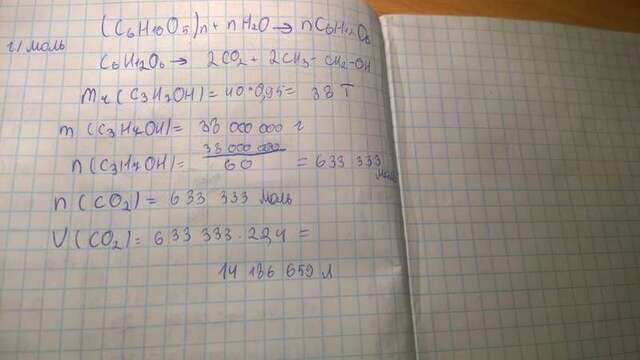 (C6H10O5)n + nH2O → nC6H12O6
г/моль
C6H12O6 → 2CO2 + 2CH3-CH2-OH
mx (C3H7OH) = 40·0,95 = 38 т
m (C3H7OH) = 38 000 000 г
n (C3H7OH) = 38 000 000 / 60 = 633 333 моль
n (CO2) = 633 333 моль
V (CO2) = 633 333 · 22,4 =
14 186 659 л